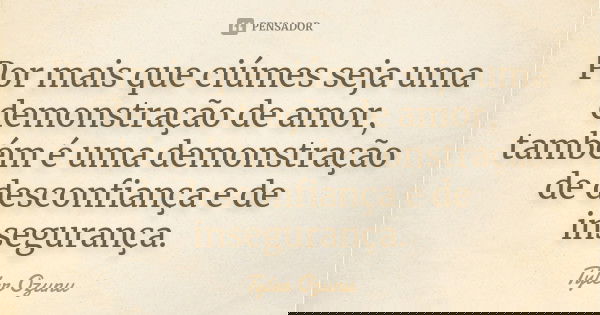 PENSADOR
Por mais que ciúmes seja uma
demonstração de amor,
também é uma demonstração
de desconfiança e de
insegurança.
Tyler Ozuru